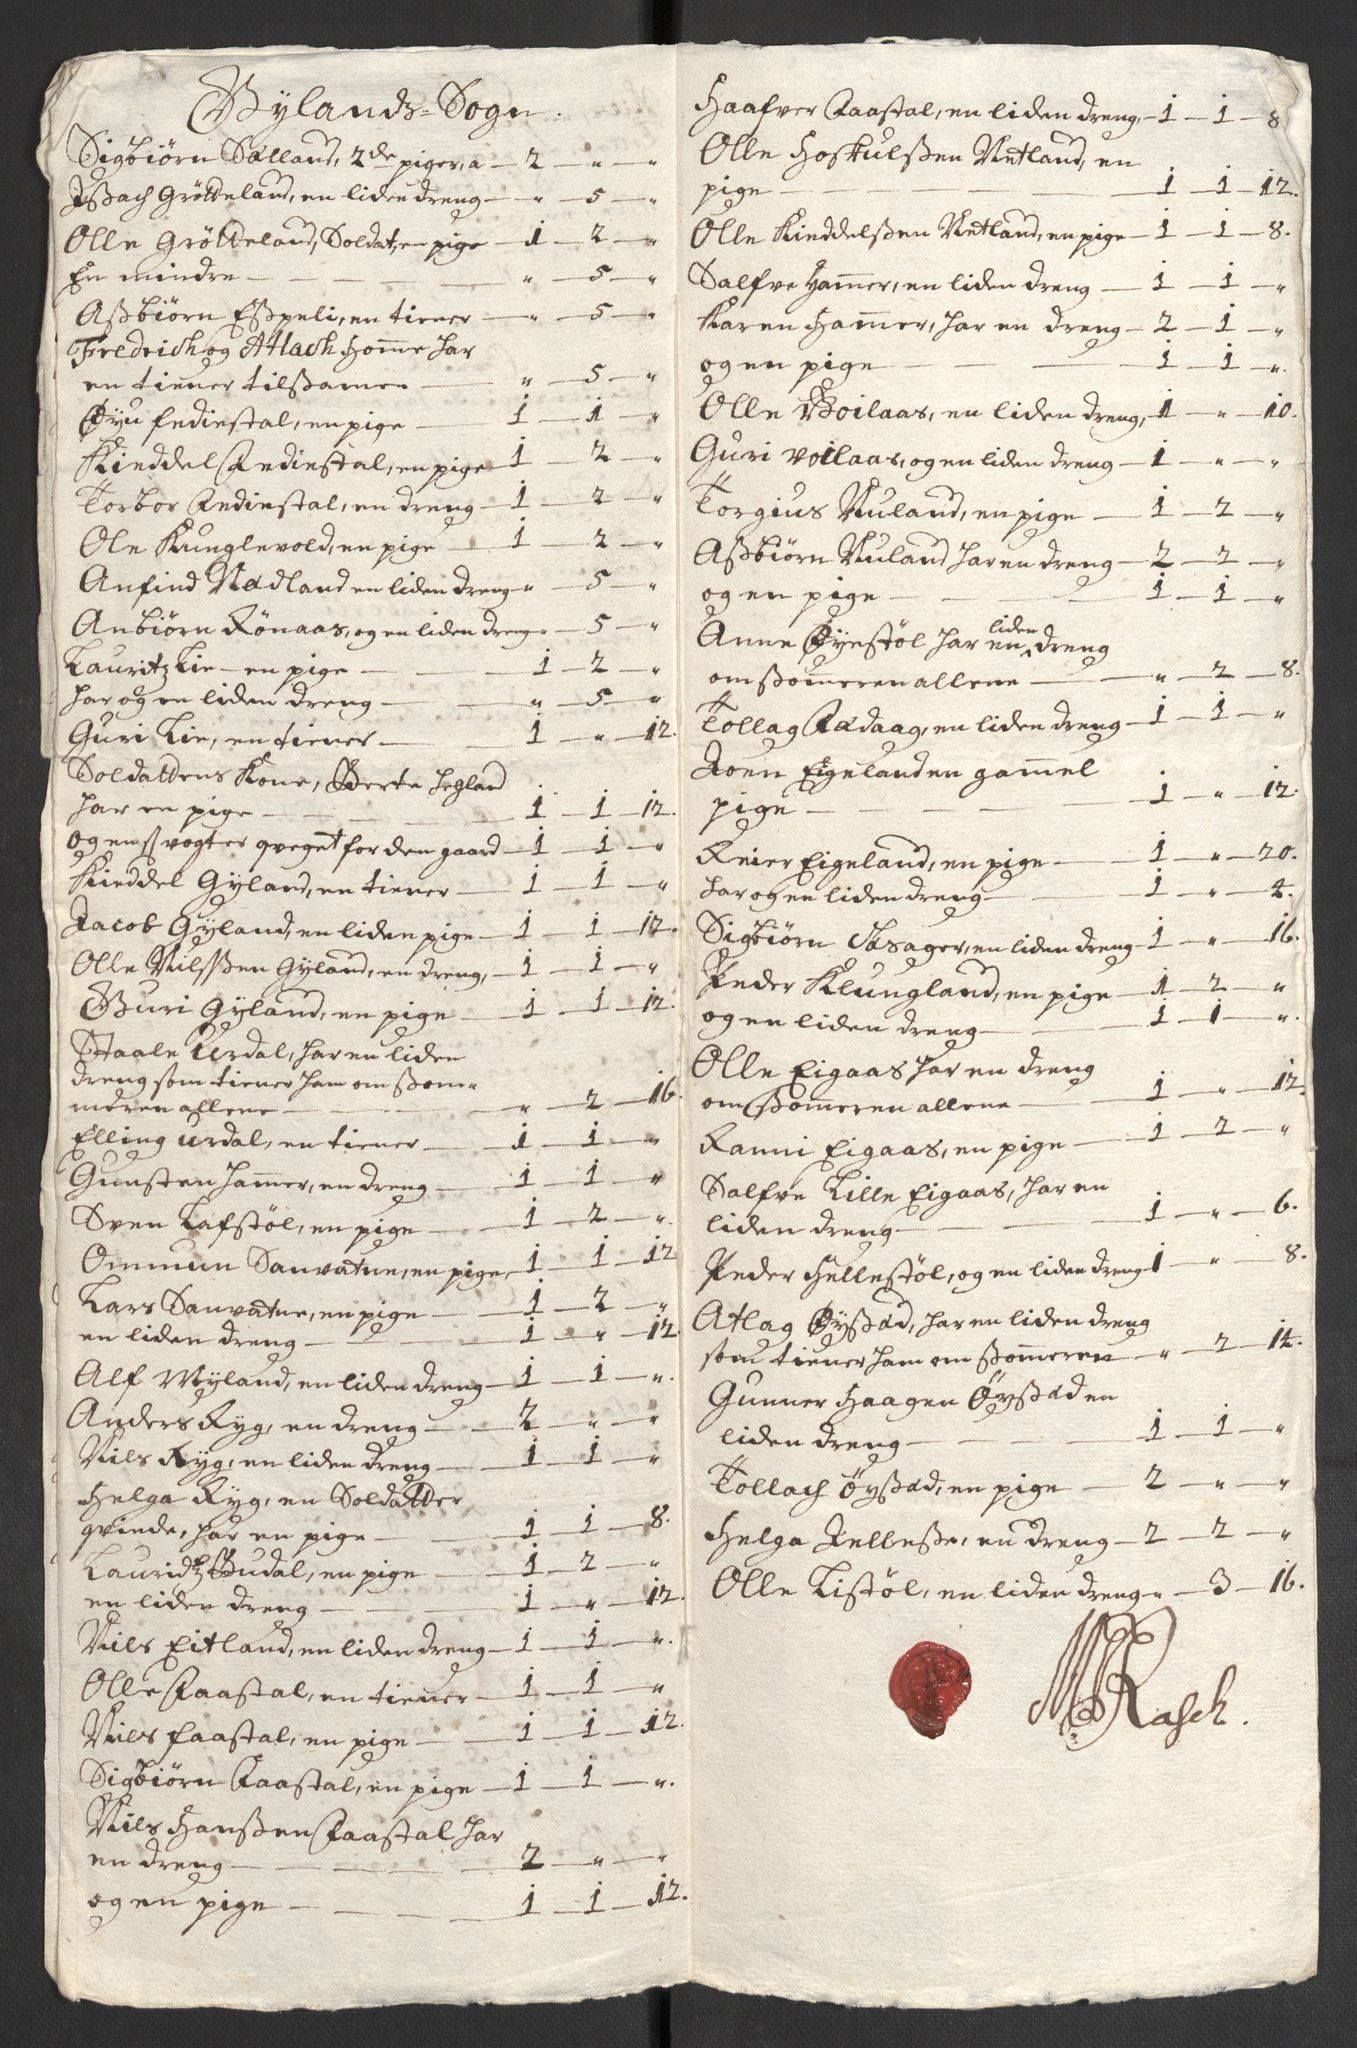 Gylands-Sogn.
Sigbiörn Sælland, 2de piger, a — 2 — " — "
Issach Grötteland, en liden dreng — " — 5 — "
Olle Grötteland, Soldat, en pige — 1 — 2 — "
En mindre — " — 5 — "
Assbiörn Espeli, en tiener — " — 5 — "
Fredrich og Atlach Homme har
en tiener tilssamen — " — 5 — "
Øyu fediestal, en pige — 1 — 1 — "
Kieddel Fediestal, en pige — 1 — 2 — "
Torbor Fediestal, en dreng — 1 — 2 — "
Ole Kunglevold, en pige — 1 — 2 — "
Anfind Nædland en liden dreng — " — 5 — "
Anbiörn Rönaas, og en liden dreng " — 5 — "
Lauritz Lie — en pige — 1 — 2 — "
har og en liden dreng — " — 5 — "
Guri Lie, en tiener — 1 — " — 12.
Soldattens Kone, Berte Hegland
har en pige — 1 — 1 — 12.
og en ss vogter qveget for den gaard — 1 — 1 — "
Kieddel Gyland, en tiener — 1 — 1 — "
Jacob Gyland, en liden pige — 1 — 1 — 12.
Olle Nilssen Gyland, en dreng, — 1 — 1 — "
Guri Gyland, en pige — 1 — 1 — 12.
Staale Urdal, har en liden
dreng som tiener ham om Som-
meren allene — " — 2 — 16.
Elling Urdal, en tiener — 1 — 1 — "
Gunsten Hammer, en dreng — 1 — 1 — "
Sven Lafstöl, en pige — 1 — 2 — "
Ommun Sanvatne, en pige, — 1 — 1 — 12
Lars Sanvatne, en pige — 1 — 2 — "
en liden dreng — 1 — " — 12.
Alf Myland, en liden dreng — 1 — 1 — ".
Anders Ryg, en dreng — 2 — " — "
Nils Ryg, en liden dreng — 1 — 1 — "
Helga Ryg, en Soldatter
qvinde, har en pige — 1 — 1 — 8.
Lauridtz Budal, en pige — 1 — 2 — "
en liden dreng — 1 — " — 12.
Nils Eitland, en liden dreng — 1 — 1 — ".
Olle Faastal, en tiener — 1 — 1 — "
Niels faastal, en pige — 1 — 1 — 12.
Sigbiörn Faastal, en pige — 1 — 1 — ".
Nils Hanssen Faastal har
en dreng — 2 — " — "
og en pige — 1 — 1 — 12.
Haafver Faastal, en liden dreng, — 1 — 1 — 8
Olle Hoskulssen Netland, en
pige — 1 — 1 — 12.
Olle Kieddelssen Netland, en pige — 1 — 1 — 8.
Salfve Hammer, en liden dreng — 1 — 1 — "
Karen Hammer, har en dreng — 2 — 1 — "
og en pige — 1 — 1 — ".
Olle Voilaas, en liden dreng, — 1 — " — 10.
Guri Voilaas, og en liden dreng — 1 — " — "
Torgius Nuland, en pige — 1 — 2 — "
Assbiörn Nuland har en dreng — 2 — 2 — "
og en pige — 1 — 1 — "
Anne Øyestöl har en liden dreng
om Sommeren allene — " — 2 — 8.
Tollag Fædaag, en liden dreng — 1 — 1 — "
Joen Eigeland en gammel
pige — 1 — " — 12.
Reier Eigeland, en pige — 1 — " — 20.
har og en liden dreng — 1 — " — 4.
Sigbiörn Aasager, en liden dreng — 1 — " — 16.
Peder Klungland, en pige — 1 — 2 — "
og en liden dreng — 1 — 1 — ".
Olle Eigaas har en dreng
om Sommeren allene — 1 — " — 12.
Ranni Eigaas, en pige — 1 — 2 — "
Salfve Lille Eigaas, har en
liden dreng — 1 — " — 6.
Peder Hellestöl, og en liden dreng 1 — " — 8.
Atlag Øyssæd, har en liden dreng
som tiener ham om Sommeren — " — 2 — 14.
Gunner Haagen Öyssæd en
liden dreng — 1 — 1 — "
Tollach Öyssæd, en pige — 2 — " — "
Helga Jellesse, en dreng — 2 — 2 — "
Olle Listöl, en liden dreng " — 3 — 16.
Rasch.